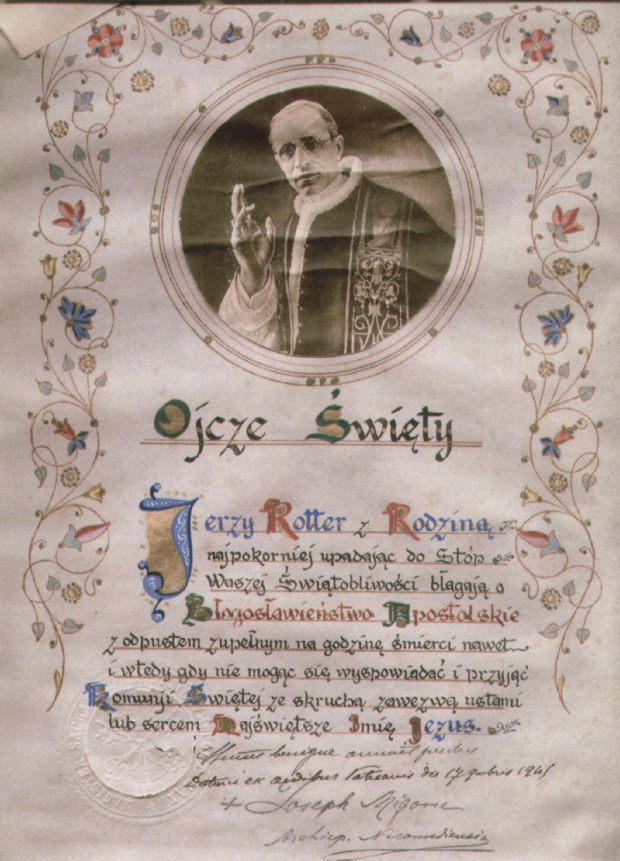 Ojcze Święty
Jerzy Rotter z Rodziną
najpokorniej upadając do Stóp
Waszej Świątobliwości błagają o
Błogosławieństwo Apostolskie
z odpustem zupełnym na godzinę śmierci nawet
i wtedy gdy nie mogąc się wyspowiadać i przyjąć
Komunji Świętej ze skruchą zawezwą ustami
lub sercem Najświętsze Imię Jezus.
benigne annuit precibus
Datum ex aedibus Vaticanis die 17 9bris 1945
+ Joseph Migone
Archiep. Nicomediensis